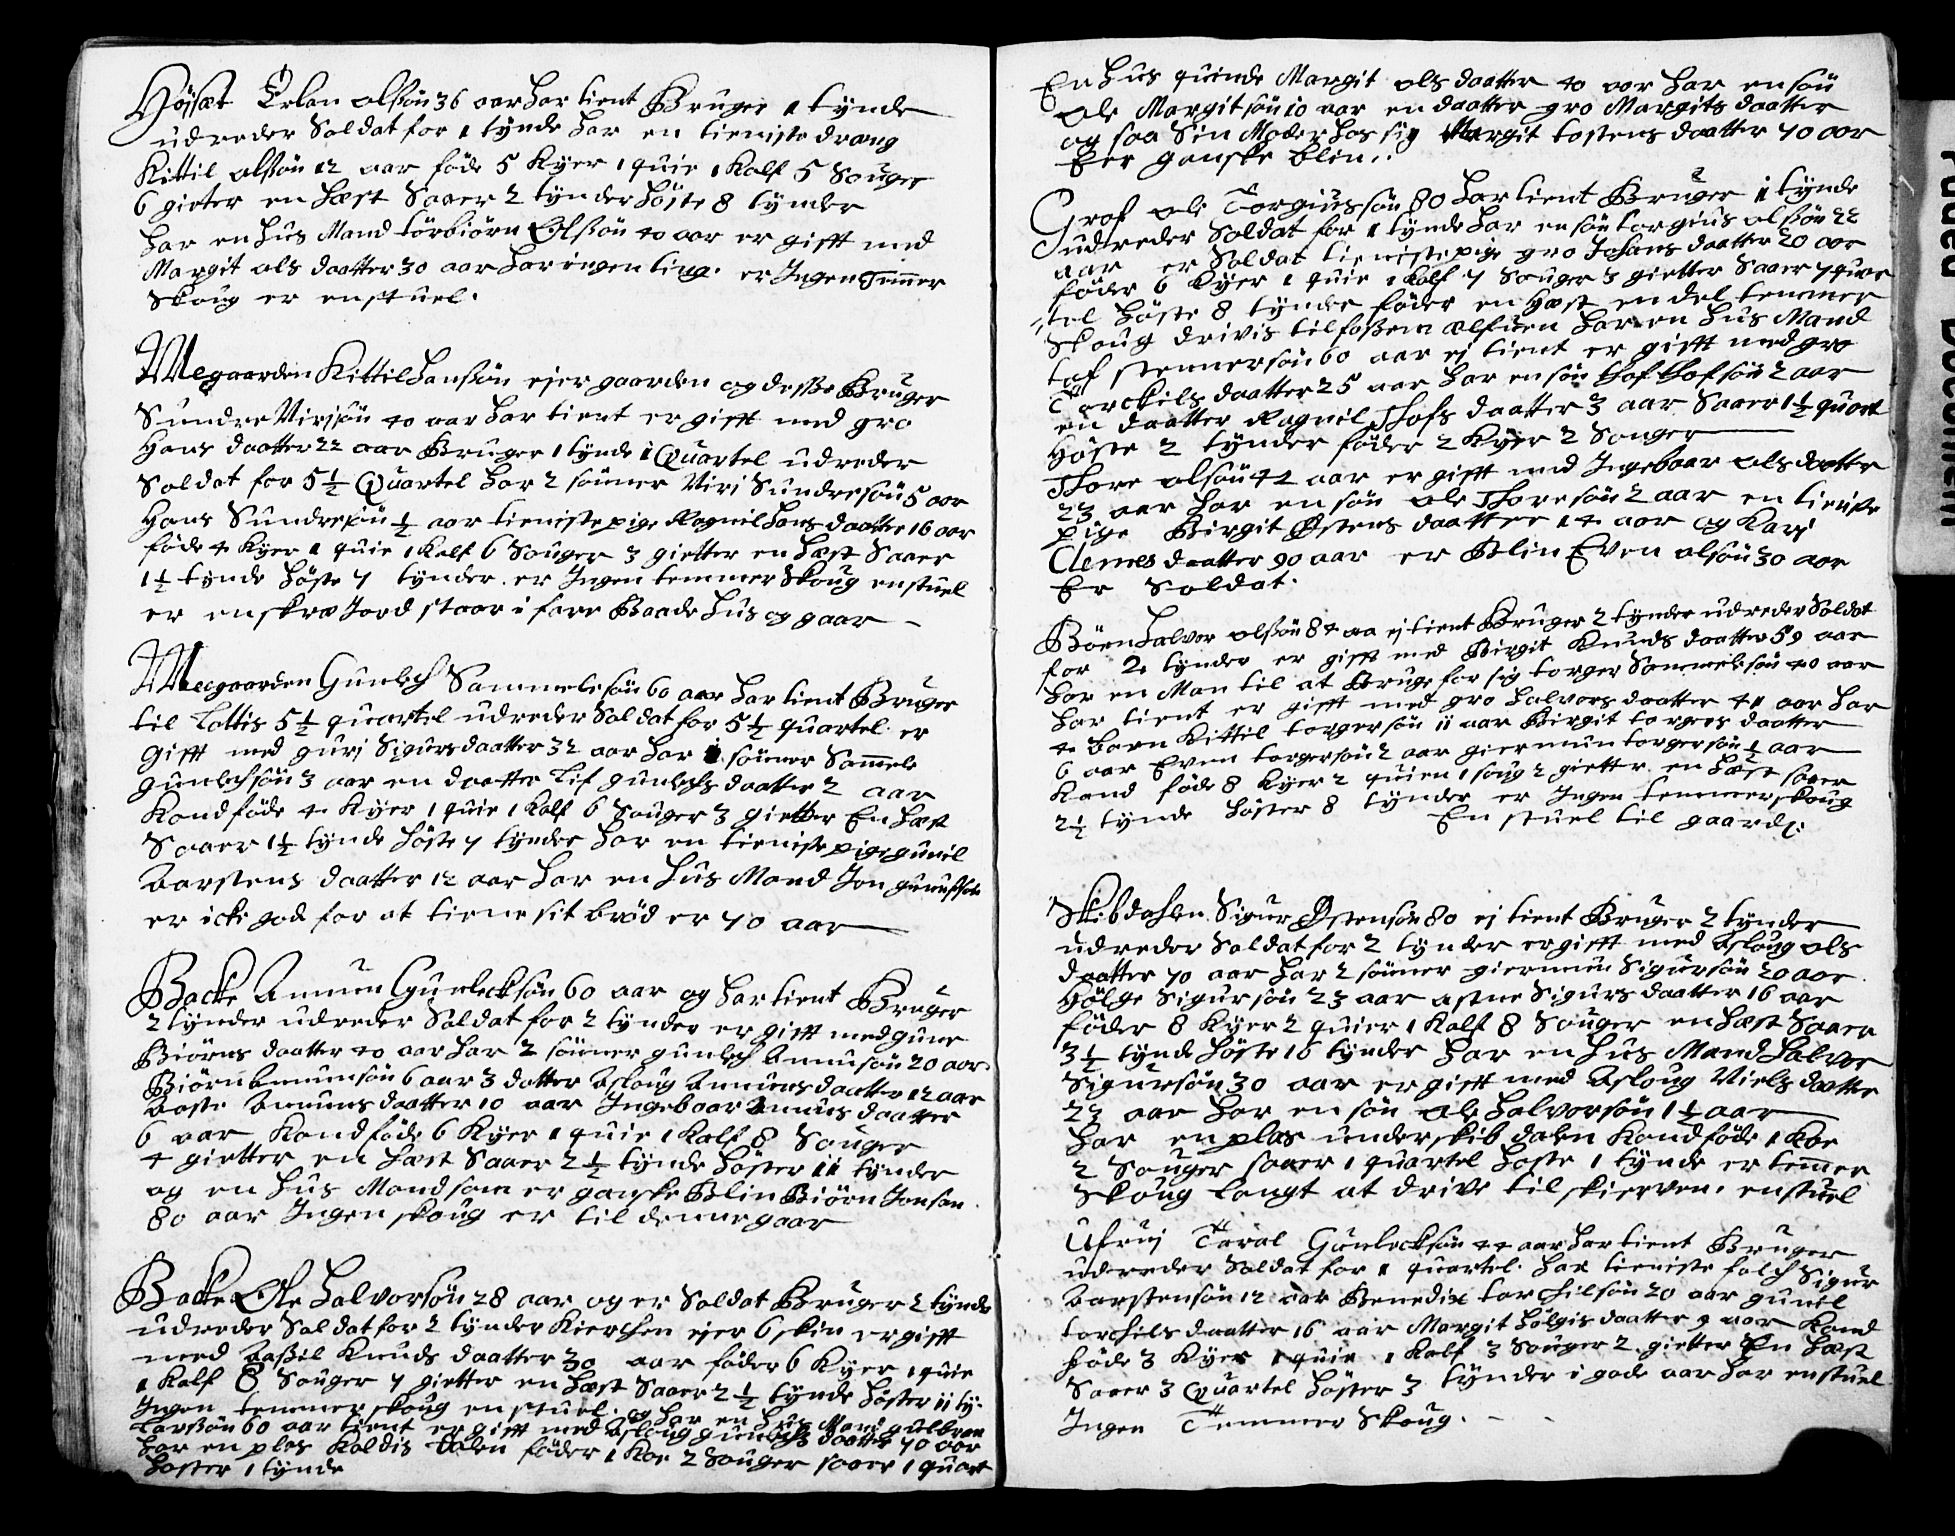 Højsæt Erlan olssøn 36 aar har tient Bruger 1 tynde
udreder Soldat for 1 tynde har en tieniste dræng
Kittil olssøn 12 aar føde 5 Kyer 1 quie 1 Kalf 5 Souger
6 gieter en hæst Saaer 2 tynder høste 8 tynder
har en hus Mand torbiørn Olssøn 40 aar er gifft med
Margit ols daatter 30 aar har ingen ting. er Ingen Timer
Skoug er en stuel.
Megaarden Kittil hanssøn ejer gaarden og desse Bruger
Sundre Virjsøn 40 aar har tient er gifft med gro
Hans daatter 22 aar Bruger 1 tynde 1 Quartel udreder
Soldat for 5½ Quartel har 2 sønner Viri Sundresøn 5 aar
Hans Sundresøn ½ aar tieniste pige Ragnil hans daatter 16 aar
føde 4 Kyer 1 quie 1 Kalf 6 Souger 3 gietter en hæst Saaer
1½ tynde høste 7 tynder. er Ingen temmer Skoug en stuel
er en skra Jord staar i fare Baade hus og gaar
Megaarden Gunlech Sammelesøn 60 aar har tient Bruger
til Lottis 5½ quartel udreder Soldat for 5½ quartel er
Gifft med gurj Sigurs daatter 32 aar har 1 sønner Sammele
Gunlechsøn 3 aar en daatter Lif gunlechs daatter 2 aar
Kand føde 4 Kyer 1 quie 1 Kalf 6 Souger 3 gietter En hæst
Saaer 1½ tynde høste 7 tynder har en tieniste pige gunil
Aarstens daatter 12 aar har en hus Mand Jon
er icke gode for at tiene sit brød er 70 aar
Backe Amun Gunlecksøn 60 aar og har tient Bruger
2 tynder udreder Soldat for 2 tynder er gifft med gune
Biørns daatter 40 aar har 2 sønner gunlech Amunsøn 20 aar
Biørn Amunsøn 6 aar 3 datter Asloug Amuns daatter 12 aar
Aaste Amuns daatter 10 aar Ingeboar Amuns daatter
6 aar Kand føde 6 Kyer 1 quie 1 Kalf 8 Souger
4 gietter en hæst Saaer 2½ tynde høster 11 tynder
og en hus Mand som er ganske Blin Biørn Jonson
80 aar Ingen skoug er til denne gaar
Backe Ole halvorsøn 28 aar og er Soldat Bruger 2 tynde
udreder Soldat for 2 tynder Kierchen ejer 6 skin er gifft
med Aassil Knuds daatter 30 aar føder 6 Kyer 1 quie
1 Kalf 8 Souger 7 gietter en hæst Saaer 2½ tynde høster 11 ty-
Ingen temmer skoug en stuel. og har en hus Mand gulbran
Larssøn 60 aar tient er gifft med Asloug gunlechs daatter 70 aar
har en plas Koldis dalen føder 1 Koe 2 Souger saaer 1 quart
høster 1 tynde
En hus quinde Margit ols daatter 40 aar har en søn
Ole Margitsøn 10 aar en daatter gro Margits daatter
og saa Sin Moder hos sig Margit tostens daatter 70 aar
Eer ganske blin.
Graf ole Torgiussøn 80 har tient Bruger 1 tynde
udreder Soldat for 1 tynde har en søn torgius olssøn 22
aar er Soldat tieniste pige gro Johans daatter 20 aar
føder 6 Kyer 1 quie 1 Kalf 7 Souger 3 gietter Saaer 7 quar
tel høste 8 tynder føder en hæst en del temmer
Skoug drivis til fossem elfuen har en hus Mand
tof stennersøn 60 aar ej tient er gifft med gro
Torckils daatter 25 aar har en søn thof thofsøn 2 aar
en daatter Ragnil Thofs daatter 3 aar Saaer 1½ quart
Høste 2 tynder føder 2 Kyer 2 Souger
Thore olsøn 42 aar er gifft med Ingeboar ols daatter
23 aar har en søn ole Thoresøn 2 aar en tieniste
pige Birgit Østens daatter 14 aar og Karj
Clemes daatter 90 aar er Blin Even olsøn 30 aar
Er Soldat.
Bøen halvor olssøn 84 aa ej tient Bruger 2 tynder udreder Soldat
for 2 tynder er gifft med Birgit Knuds daatter 59 aar
har en Man til at Bruge for sig torger Sammelesøn 40 aar
har tient er gifft med gro halvors daatter 41 aar har
4 barn Kittil torgersøn 11 aar Birgit torgers daatter
6 aar Even torgersøn 2 aar giermun torgersøn ½ aar
Kand føde 8 Kyer 2 quien 1 soug 2 gietter en hæst saaer
2½ tynde høster 8 tynder er Ingen temmer skoug
En stuel til gaard.
Skibdahlen Sigur Østensøn 80 ej tient Bruger 2 tynder
udreder Soldat for 2 tynder er gifft med Asloug ols
daatter 70 aar har 2 sønner giermun Sigursøn 20 aar
Hølge Sigursøn 23 aar astne Sigurs daatter 16 aar
føder 8 Kyer 2 quier 1 Kalf 8 Souger en hæst Saaer
3½ tynde høste 16 tynder har en hus Mand halvor
Sigursøn 30 aar er gifft med Asloug Niels daatter
22 aar har en søn ole halvorsøn 1½ aar
har en plas under skib dalen Kand føde 1 Koe
2 Souger saaer 1 quartel høste 1 tynde er temer
Skoug langt at drive til skierven. en stuel
Ufruj Taral Gunlecksøn 44 aar har tient Bruger
udreder Soldat for 1 quartel. har tieniste folch Sigur
Aarstensøn 12 aar Benedix torchilsøn 20 aar gunil
torchels daatter 16 aar Margit hølgis daatter 9 aar Kand
føde 3 Kyer 1 quie 1 Kalf 3 Souger 2 gietter En hæst
Saaer 3 Quartel høster 3 tynder i gode aar har en stuel
Ingen Temmer Skoug.